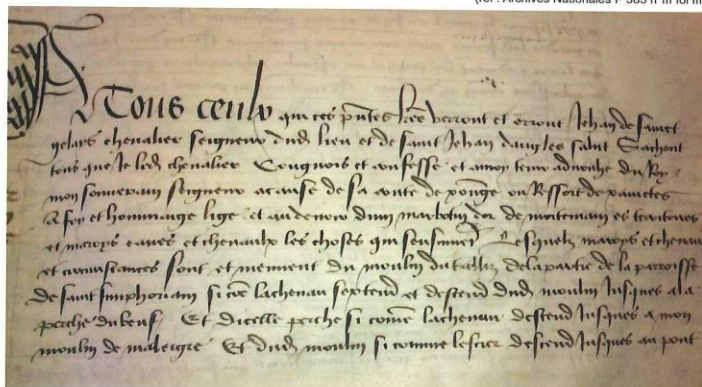 (réf : Archives Nationales P 585 n° III fol III
A Tous ceulx qui ces pntes lres verront et orront Jehan de sainct
gelays chevalier seigneur dud lieu et de saint Jehan dangles salut Sachent
tous que Je led chevalier Congnois et confesse et avoy tenir adveuhe du Roy
mon souverain seigneur a cause de sa conte de ou Ressort de xainctes
A foy et hommaige lige et au devoir dun marbotin dor de mortemain es teritoires
et maroys eaues et chenaulx les choses qui sensuivent Lesquelz maroys et chenau
et circunstances sont et meuvent du moulin de la partie de la parroisse
de saint simphorian si coe lachenau sextend et descend dud moulin Jusques a la
perche dubeuf Et dicelle perche si come lachenau descend Jusques a mon
moulin de maleigre Et dud moulin si comme lestier descend Jusques au pont